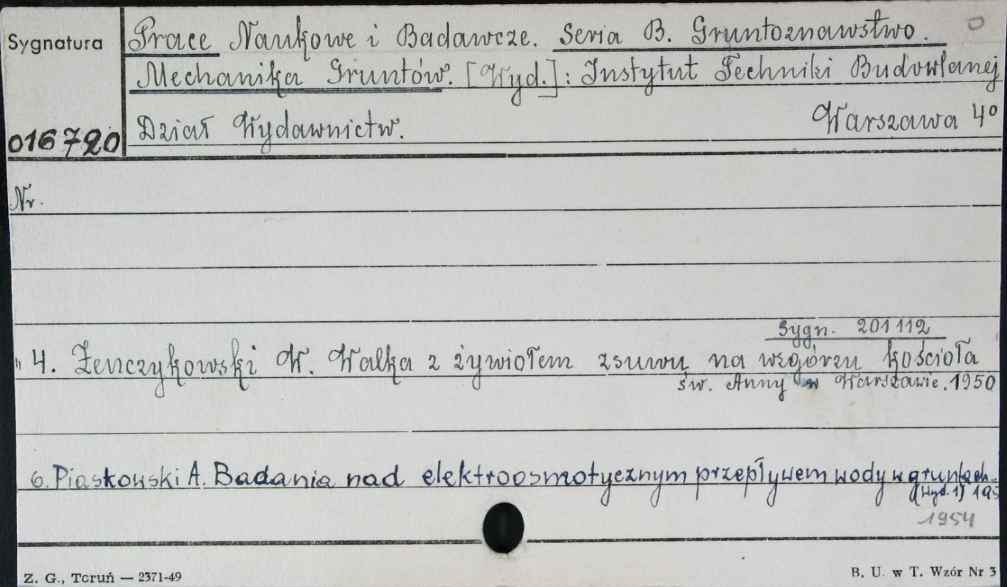 Sygnatura
016720
Prace Naukowe i Badawcze. Seria B. Gruntoznawstwo.
Mechanika Gruntów. [Wyd.]: Instytut Techniki Budowlanej
Dział Wydawnictw. Warszawa 4º
Nr.
Sygn. 201112
" 4. Żenczykowski W. Walka z żywiołem zsuwu na wzgórzu kościoła
św. Anny w Warszawie. 1950
6. Piaskowski A. Badania nad elektroosmotycznym przepływem wody w gruntach.
(Wyd. 1) 195
1954
Z. G., Toruń — 2371-49
B. U. w T. Wzór Nr 3